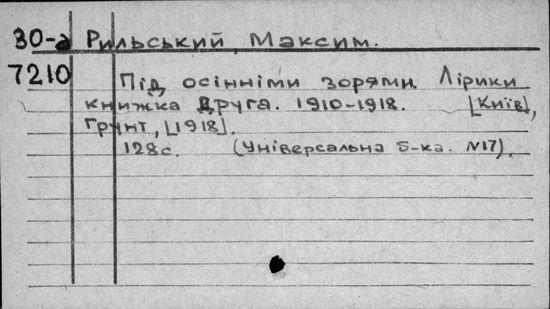 30-а Рильський, Максим.
7210 Під осінніми зорями. Лірики
книжка друга. 1910-1918. [Київ],
Грунт, [1918].
128с. (Універсальна б-ка. №17).